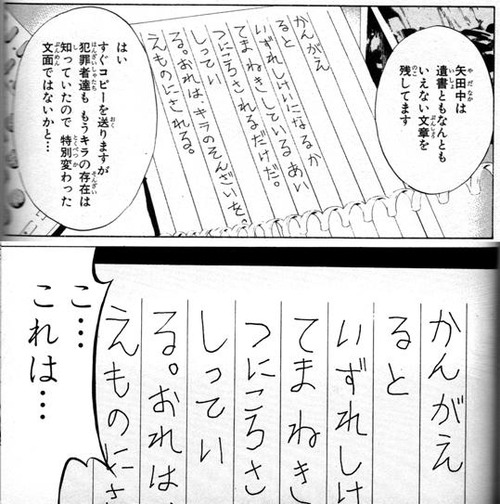 矢田中は
遺書ともなんとも
いえない文章を
残してます
かんがえ
ると
いずれしけいになるか
てまねきしているあい
つにころされるだけだ。
しってい
る。おれはキラのそんざいを。
えものにされる。
はい
すぐコピーを送りますが
犯罪者達も もうキラの存在は
知っていたので 特別変わった
文面ではないかと…
かんがえ
ると
いずれしけ
てまねき
つにころさ
しってい
る。おれは
えものにさ
こ…
これは…